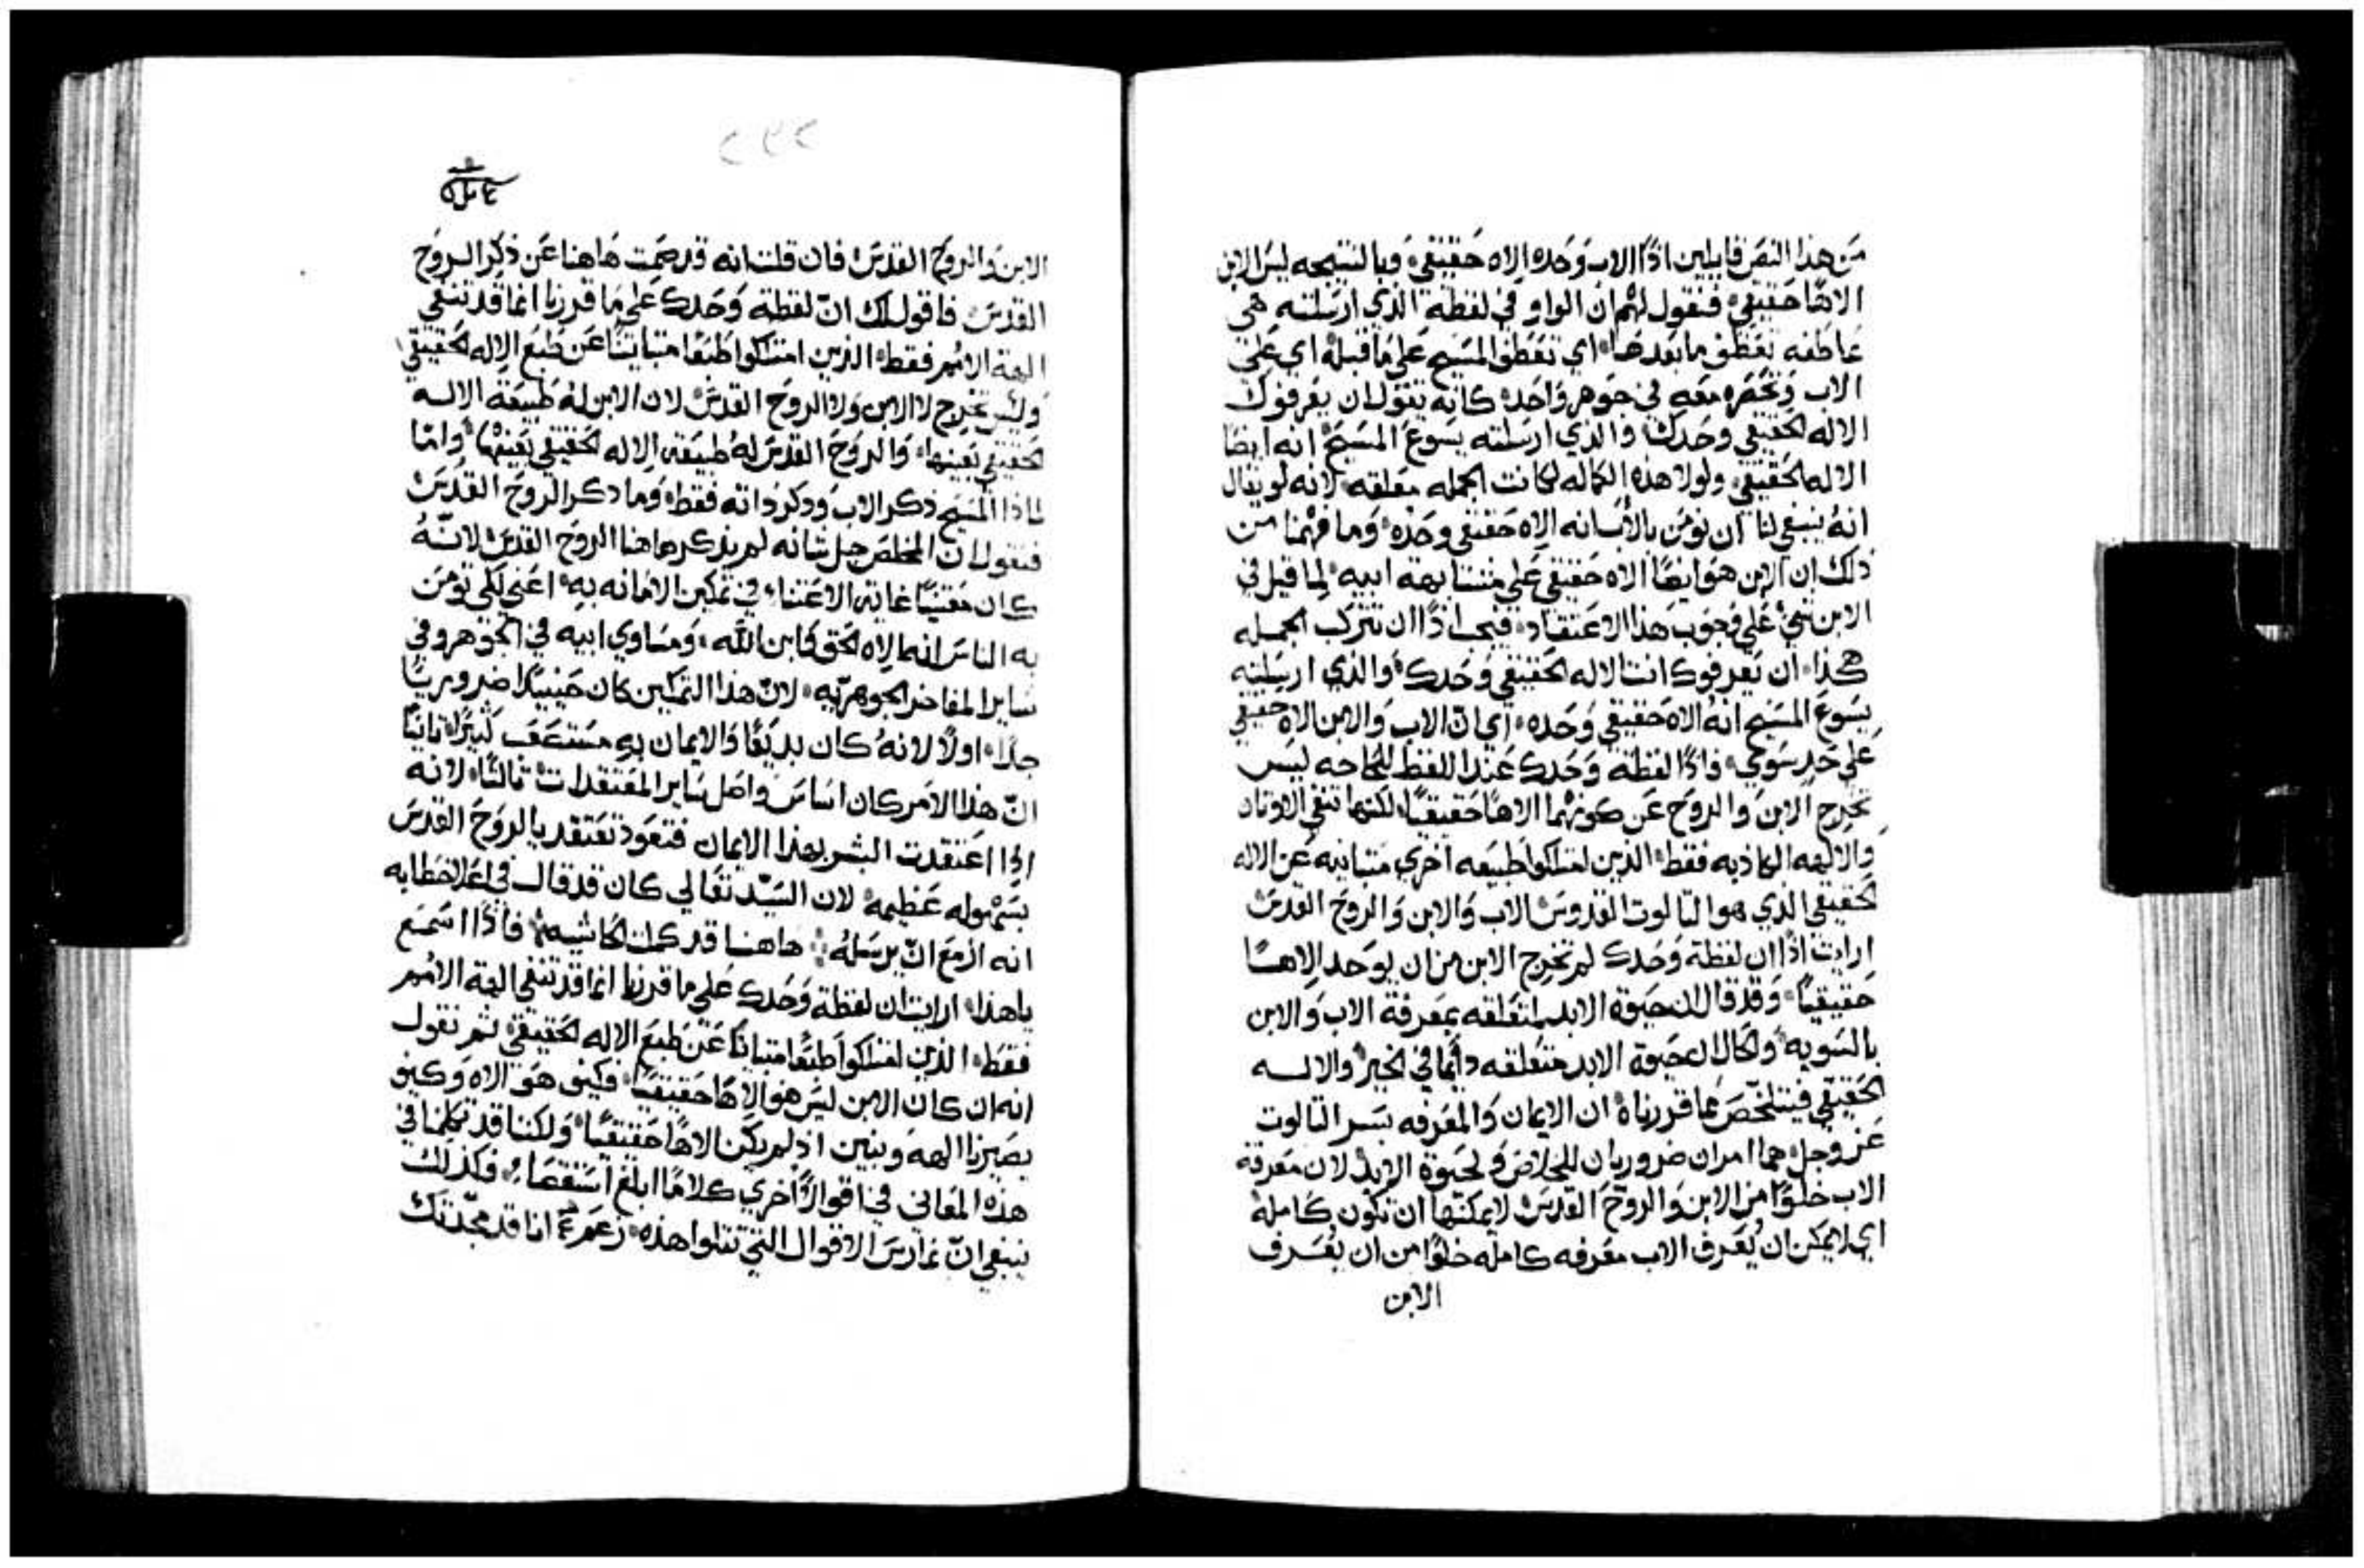 من هذا النص قايلين اذًا الاب وحده الاه حقيقي، وبالنتيجه ليس الابن
الاهًا حقيقي، فنقول لهم ان الواو في لفظة الذي ارسلته هي
عاطفه تعطف ما بعدها، اي تعطف المسيح على ما قبله اي على
الاب وتحصره معه في جوهر واحد، كانه يقول ان يعرفوك
الاله الحقيقي وحدك، والذي ارسلته يسوع المسيح انه ايضا
الاله الحقيقي، ولولا هذه الكماله لكانت الجمله معلقه، لانه لو يقال
انه ينبغي لنا ان نومن بالاب انه الاه حقيقي وحده، وما فهمنا من
ذلك ان الابن هو ايضًا الاه حقيقي على مشابهة ابيه، لما قيل في
الابن شي على وجوب هذا الاعتقاد، فيجب اذًا ان تتركب الجمله
هكذا، ان يعرفوك انت الاله الحقيقي وحدك، والذي ارسلته
يسوع المسيح انه الاه حقيقي وحده، اي ان الاب والابن الاه حقيقي
على حد سوي، فاذًا لفظة وحدك عند اللفظ للحاجه ليس
تخرج الابن والروح عن كونهما الاهًا حقيقيًا، لكنها تنفي الاوتان
والالهه الكاذبه فقط، الذين امتلكوا طبيعه اخري متباينه عن الاله
الحقيقي الذي هو التالوت القدوس الاب والابن والروح القدس
ارايت اذًا ان لفظة وحدك لم تخرج الابن من ان يوحد الاهـا
حقيقيًا، وقد قال ان حيوة الابد متعلقه بمعرفة الاب والابن
بالسويه، والحال ان حيوة الابد متعلقه دائمًا في الخير والاله
الحقيقي فيتلخص مما قررناه، ان الايمان والمعرفه بسر التالوت
عز وجل، هما امران ضروريان للخلاص ولحيوة الابد، لان معرفة
الاب خلوًا من الابن والروح القدس لا يمكنها ان تكون كامله
اي لا يمكن ان يُعرف الاب معرفه كامله خلوًا من ان يُعرف
الابن
٢٣٢
الابن والروح القدس، فان قلت انه قد صمت هاهنا عن ذكر الروح
القدس، فاقول لك انّ لفظة وحدك على ما قررنا انما قد تنفي
الهة الامم فقط، الذين امتلكوا طبعًا متباينًا عن طبع الاله الحقيقي
وليس تخرج لا الابن ولا الروح القدس، لان الابن له طبيعة الاله
الحقيقي بعينها، والروح القدس له طبيعة الاله الحقيقي بعينها، واما
لماذا المسيح ذكر الاب وذكر ذاته فقط، وما ذكر الروح القدس
فنقول ان المخلص جل شانه لم يذكر هاهنا الروح القدس، لانّهُ
كان معتنيًا غاية الاعتنا، في تمكين الامانه به، اعني لكي تومن
به الناس انه الاه الحق كابن الله، ومساوي ابيه في الجوهر وفي
ساير المفاخر الجوهريّه، لانّ هذا التمكين كان حينيذٍ ضروريًا
جدًا، اولًا لانهُ كان بديعًا والايمان به مستصعب كثيرًا، ثانيًا
انّ هذا الامر كان اساس واصل ساير المعتقدات، ثالثًا، لانه
اذا اعتقدت البشر بهذا الايمان فتعود تعتقد بالروح القدس
بسهوله عظيمه، لان السيّد تعالي كان قد قال في اعلا خطابه
انه ازمع انّ يرسله، هاهنا قد كملت الحاشيه، فاذًا اسمع
يا هذا، ارايت ان لفظة وحدك على ما قررنا انما قد تنفي الهة الامم
فقط، الذين امتلكوا طبعًا متباينًا عن طبع الاله الحقيقي، ثم نقول
انه ان كان الابن ليس هو الاهًا حقيقيًا، فكيف هو الاه وكيف
يصيرنا الهه وبنين اذ لم يكن الاهًا حقيقيًا، ولكننا قد تكلمنا في
هذه المعاني في اقوالًا اخري كلامًا ابلغ استقصاء، فكذلك
ينبغي انّ نمارس الاقوال التي تتلوا هذه، زعم انا قد مجّدتك